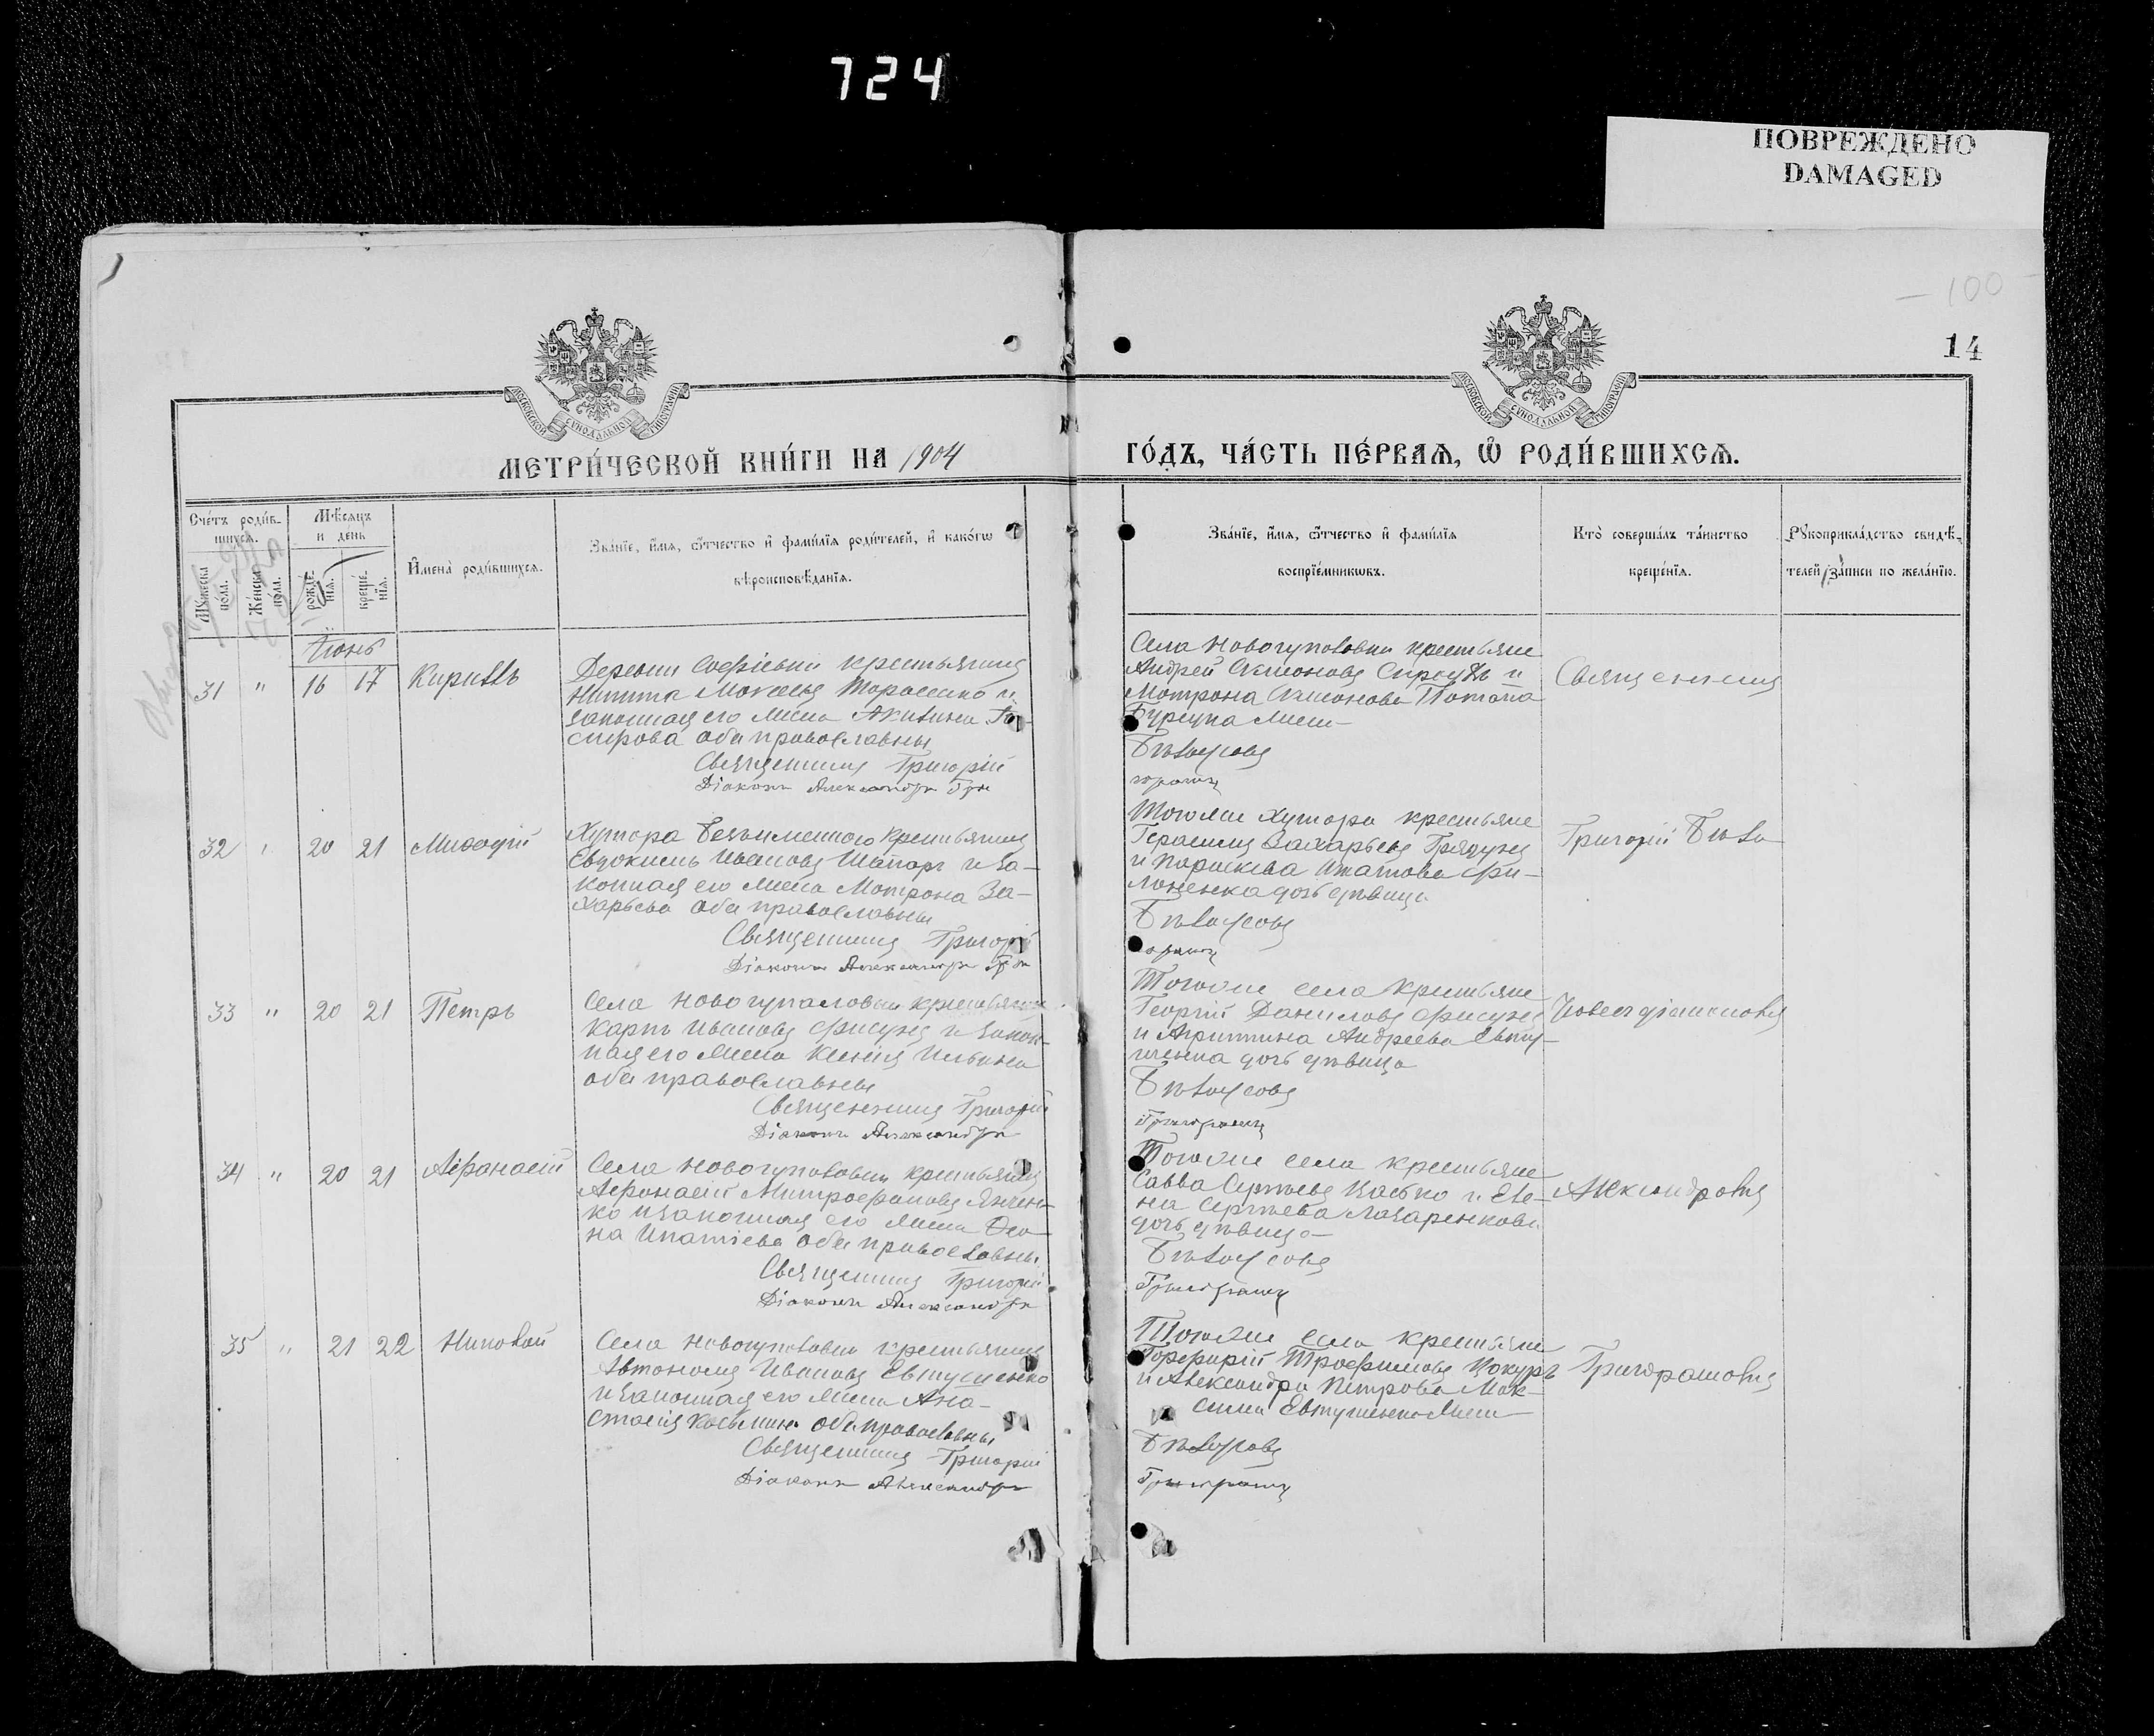 724
ПОВРЕЖДЕНО
DAMAGED
100
14
МОСКОВСКОЙ СѴНОДАЛЬНОЙ ТИПОГРАФІИ
МОСКОВСКОЙ СѴНОДАЛЬНОЙ ТИПОГРАФІИ
МЕТРИ́ЧЕСКОЙ КНИ́ГИ НА 1904
ГО́ДЪ, ЧА́СТЬ ПЕ́РВАѦ, Ѡ РОДИ́ВШИХСѦ.
Сче́тъ роди́в-
шихсѧ.
Мꙋ́жеска
по́ла.
Же́нска
по́ла.
Мѣ́сѧцъ
и день
рожде́-
нїѧ.
креще́-
нїѧ.
И́мена̀ роди́вшихсѧ.
Зва́нїе, и́мѧ, ѻ́тчество и҆ фами́лїѧ роди́телей, и҆ како́гѡ
вѣроисповѣ́данїѧ.
Зва́нїе, и́мѧ, ѻ́тчество и҆ фами́лїѧ
воспрїе́мникѡвъ.
Кто̀ соверша́лъ та́инство
креще́нїѧ.
Рꙋкоприкла́дство свидѣ́-
телей за́писи по жела́нїю.
Іюнь
31 " 16 17 Кириллъ
Деревни Софіевки крестьянинъ
Никита Моисеевъ Тарасенко и
законная его жена Акилина
обa православны
Священникъ Григорій
Діаконъ Александръ Гри
Села Новогуполовки крестьяне
Андрей и
Мотрона Потапа
жена
Бѣлоусовъ
горашъ
Священникъ
32 " 20 21 Меѳодій
Хутора Безъименного крестьянинъ
Евдокимъ Ивановъ Шапарь и за-
конная его жена Мотрона За-
харьева оба православны
Священникъ Григорій
Діаконъ Александръ Гри
Того же хутора крестьяне
Герасимъ Захарьевъ
и Параскева Игнатова Фи-
лоненкова дочь дѣвица
Бѣлоусовъ
горашъ
Григорій Бѣло
33 " 20 21 Петръ
Села Новогупаловки крестьянинъ
Карпъ Ивановъ Фисунъ и закон-
ная его жена Ксенія Ильина
оба православны
Священникъ Григорій
Діаконъ Александръ
Того же села крестьяне
Георгій Даниловъ Фисунъ
и Агриппина Андреева Евту-
шенка дочь дѣвица
Бѣлоусовъ
Григорашъ
усовъ съ діакономъ
34 " 20 21 Аѳанасій
Села Новогуполовки крестьянинъ
Аѳанасій Митрофановъ Янчен-
ко и законная его жена Ѳео-
на Ипатіева оба православны
Священникъ Григорій
Діаконъ Александръ
Того же села крестьяне
Савва Сергѣевъ Касько и Еле-
на Сергѣева Лазаренкова
дочь дѣвица
Бѣлоусовъ
Григорашъ
Александромъ
35 " 21 22 Николай
Села Новогуполовки крестьянинъ
Автономъ Ивановъ Евтушенко
и законная его жена Ана-
стасія Косьмина оба православны
Священникъ Григорій
Діаконъ Александръ
Того же села крестьяне
Порфирій Трофимовъ Кокуръ
и Александра Петрова Мак-
сима Евтушенко жена
Бѣлоусовъ
Григорашъ
Григорашомъ